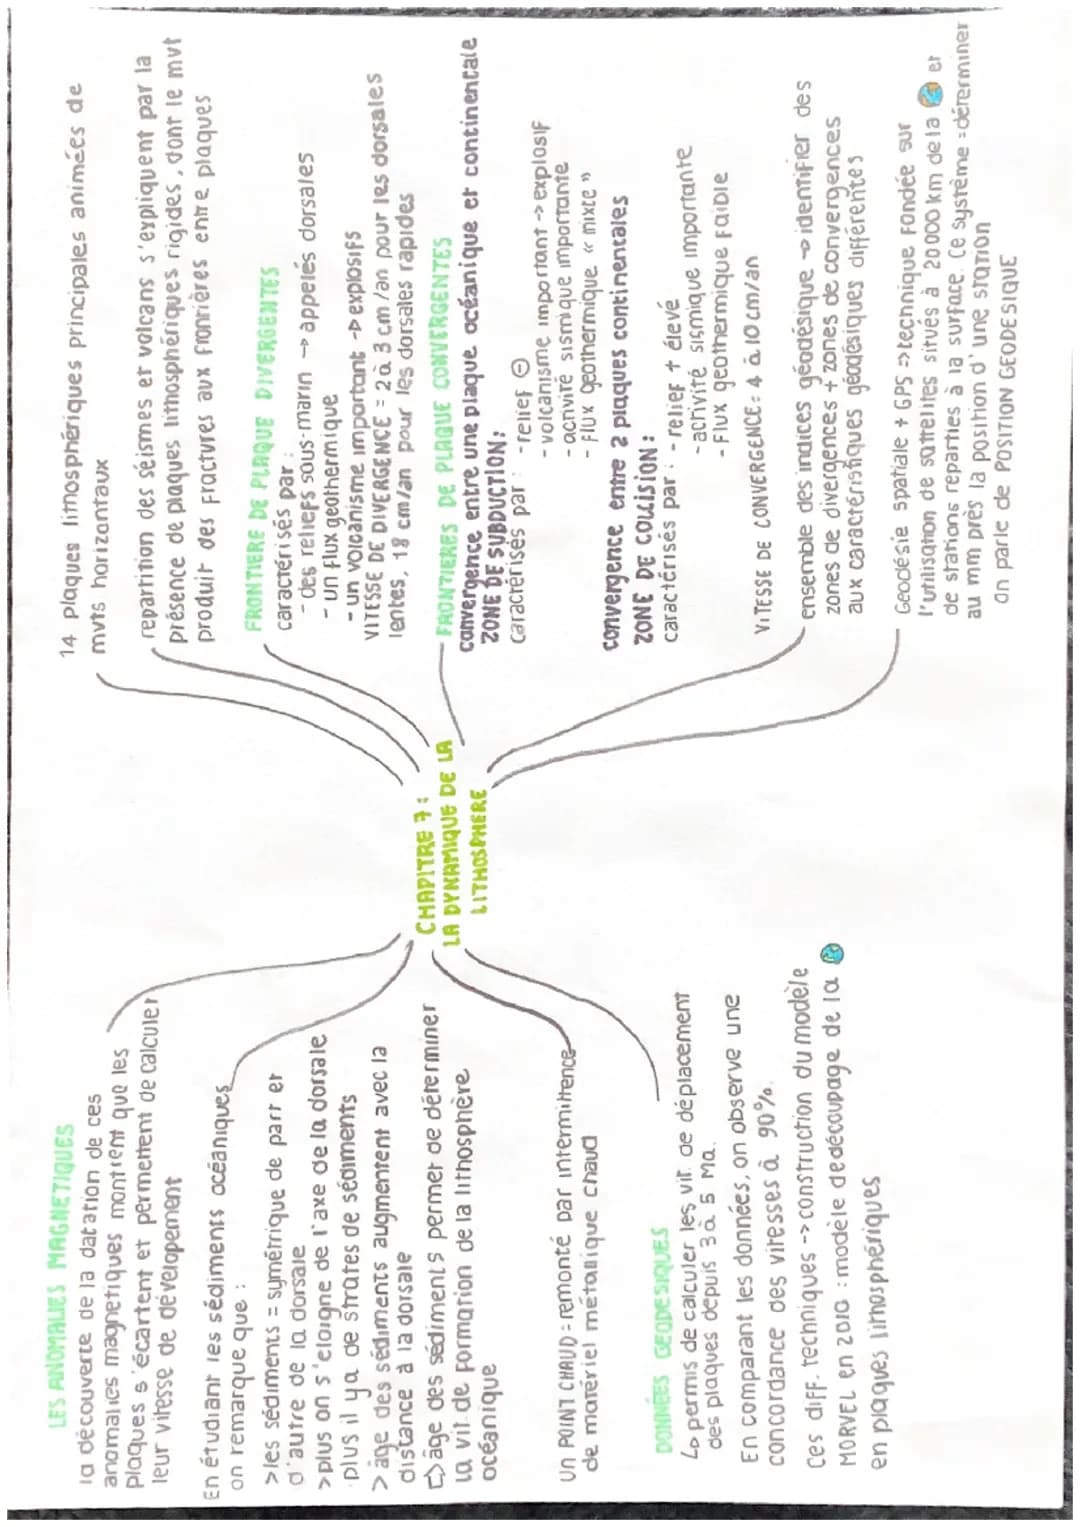 LES ANOMALIES MAGNETIQUES
la découverte de la datation de ces
anomalies magnetiques montrent que les
plaques s'écartent et permettent de calculer
leur vitesse de dévelopement
En étudiant les sédiments océaniques,
on remarque que :
>les sédiments = symétrique de part et
d'autre de la dorsale
>plus on s'eloigne de l'axe de la dorsale
plus il ya de strates de sédiments
>âge des sédiments augmentent avec la
distance à la dorsale
⇨âge des sédiments permet de déterminer
la vit. de formation de la lithosphère
océanique
Un POINT CHAUD = remonté par intermittence
de matériel métallique chaud
DONNÉES GEODESIQUES
↳ permis de calculer les vit. de déplacement
des plaques depuis 3 à 5 Ma.
En comparant les données, on observe une
concordance des vitesses à 90%.
Ces diff. techniques -> construction du modèle
MORVEL en 2010 : modèle dedécoupage de la 🌍
en plaques lithosphériques
CHAPITRE 7 :
LA DYNAMIQUE DE LA
LITHOSPHERE
14 plaques lithosphériques principales animées de
mvts horizontaux
repartition des séismes et volcans s'expliquent par la
présence de plaques lithosphériques rigides, dont le mvt
produit des fractures aux frontières entre plaques
FRONTIERE DE PLAQUE DIVERGENTES
caractérisés par :
- des reliefs sous-marin -> appelés dorsales
- un flux geothermique
- un volcanisme important -> explosifs
VITESSE DE DIVERGENCE = 2 à 3 cm/an pour les dorsales
lentes, 18 cm/an pour les dorsales rapides
FRONTIERES DE PLAQUE CONVERGENTES
convergence entre une plaque océanique et continentale
ZONE DE SUBDUCTION:
caractérisés par : - relief ⊖
- volcanisme important -> explosif
- activité sismique importante
- flux geothermique « mixte »
convergence entre 2 plaques continentales
ZONE DE COLLISION :
caractérisés par : - relief + élevé
- activité sismique importante
- Flux geothermique faible
VITESSE DE CONVERGENCE : 4 à 10 cm/an
ensemble des indices géodésique -> identifier des
zones de divergences + zones de convergences
aux caractéristiques géodésiques différentes
Geodésie spatiale + GPS => technique fondée sur
l'utilisation de sattelites situés à 20 000 km de la 🌍 et
de stations reparties à la surface. Ce système = déterminer
au mm près la position d'une station
on parle de POSITION GEODESIQUE